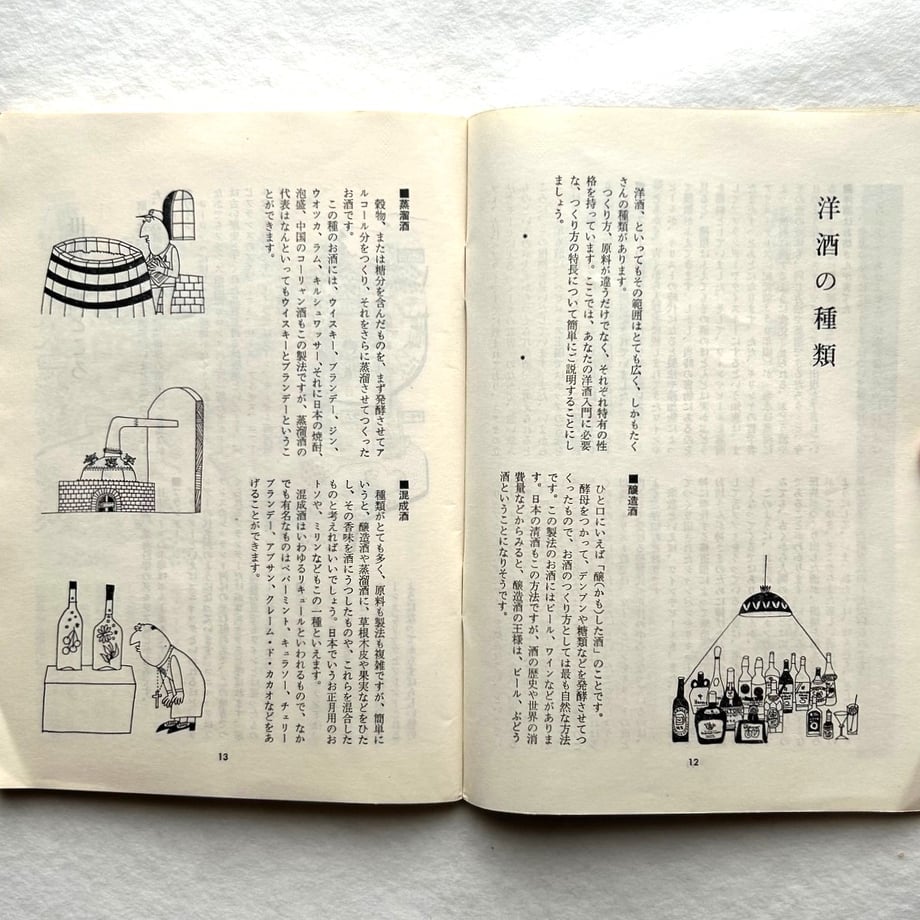 洋酒の種類
洋酒、といってもその範囲はとても広く、しかもたく
さんの種類があります。
つくり方、原料が違うだけでなく、それぞれ特有の性
格を持っています。ここでは、あなたの洋酒入門に必要
な、つくり方の特長について簡単にご説明することにし
ましょう。
■醸造酒
ひと口にいえば「醸(かも)した酒」のことです。
酵母をつかって、デンプンや糖類などを発酵させてつ
くったもので、お酒のつくり方としては最も自然な方法
です。この製法のお酒にはビール、ワインなどがありま
す。日本の清酒もこの方法ですが、酒の歴史や世界の消
費量などからみると、醸造酒の王様は、ビール、ぶどう
酒ということになりそうです。
12
■蒸溜酒
穀物、または糖分を含んだものを、まず発酵させてア
ルコール分をつくり、それをさらに蒸溜させてつくった
お酒です。
この種のお酒には、ウイスキー、ブランデー、ジン、
ウオツカ、ラム、キルシュワッサー、それに日本の焼酎、
泡盛、中国のコーリャン酒もこの製法ですが、蒸溜酒の
代表はなんといってもウイスキーとブランデーというこ
とができます。
■混成酒
種類がとても多く、原料も製法も複雑ですが、簡単に
いうと、醸造酒や蒸溜酒に、草根木皮や果実などをひた
し、その香味を酒にうつしたものや、これらを混合した
ものと考えればいいでしょう。日本でいうお正月用のお
トソや、ミリンなどもこの一種といえます。
混成酒はいわゆるリキュールといわれるもので、なか
でも有名なものはペパーミント、キュラソー、チェリー
ブランデー、アブサン、クレーム・ド・カカオなどをあ
げることができます。
13